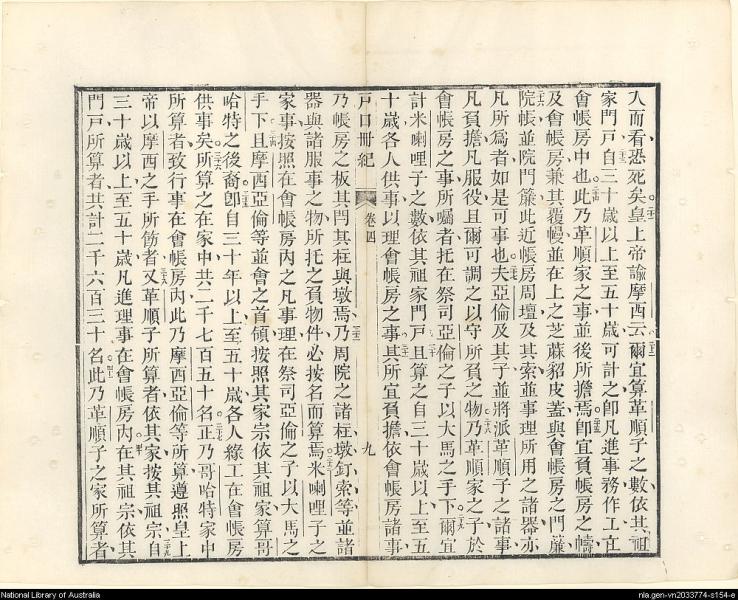 入而看恐死矣皇上帝諭摩西云爾宜算革順子之數依其祖
家門戸自三十歲以上至五十歲可計之卽凡進事務作工在
會帳房中也此乃革順家之事並後所擔焉卽宜負帳房之幬
及會帳房兼其覆幔並在上之芝蔴貂皮蓋與會帳房之門簾
院帳並院門簾此近帳房周壇及其索並事理所用之諸器亦
凡所爲者如是可事也夫亞倫及其子並將派革順子之諸事
凡負擔凡服役且爾可調之以守所負之物乃革順家之子於
會帳房之事所囑者托在祭司亞倫之子以大馬之手下爾宜
計米喇哩子之數依其祖家門戸且算之自三十歲以上至五
十歲各人供事以理會帳房之事其所宜負擔依會帳房諸事
戸口冊紀 卷四 九
乃帳房之板其閂其柱與墩焉乃周院之諸柱墩釘索等並諸
器與諸服事之物所托之負物件必按名而算焉米喇哩子之
家事按照在會帳房內之凡事理在祭司亞倫之子以大馬之
手下且摩西亞倫等並會之首領按照其家宗依其祖家算哥
哈特之後裔卽自三十年以上至五十歲各人緣工在會帳房
供事矣所算之在家中共二千七百五十名正乃哥哈特家中
所算者致行事在會帳房內此乃摩西亞倫等所算遵照皇上
帝以摩西之手所飭者又革順子所算者依其家按其祖宗自
三十歲以上至五十歲凡進理事在會帳房內在其祖宗依其
門戸所算者共計二千六百三十名此乃革順子之家所算者
National Library of Australia
nla.gen-vn2033774-s154-e